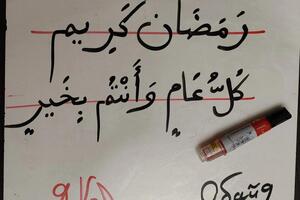 رَمَضَان كَرِيم
كُلُّ عَامٍ وَأَنْتُم بِخَيرٍ